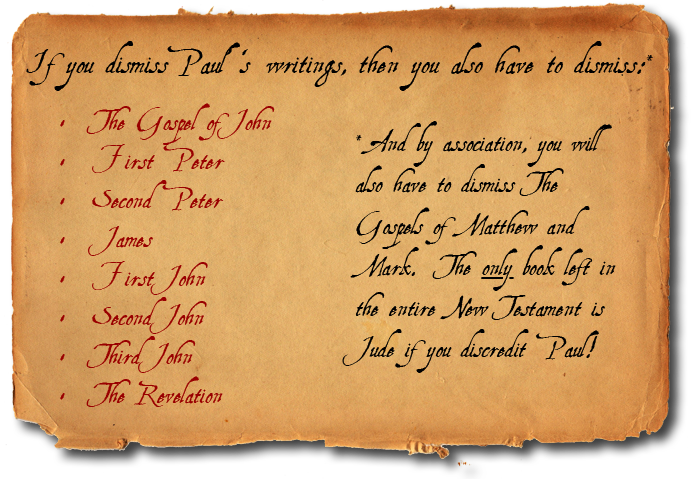 If you dismiss Paul's writings, then you also have to dismiss:*
• The Gospel of John
• First Peter
• Second Peter
• James
• First John
• Second John
• Third John
• The Revelation
*And by association, you will
also have to dismiss The
Gospels of Matthew and
Mark. The only book left in
the entire New Testament is
Jude if you discredit Paul!